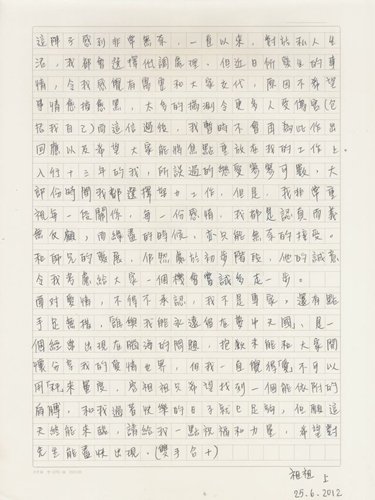 這陣子感到非常無奈，一直以來，對於私人生
活，我都會選擇低調處理。但近日所發生的事
情，令我感覺有需要和大家交代，原因不希望
事情愈描愈黑，太多的揣測令更多人受傷害(包
括我自己)而這信過後，我暫時不會再為此作出
回應以及希望大家能將焦點重放在我的工作上
入行十三年的我，所談過的戀愛寥寥可數，大
部份時間我都選擇努力工作，但是，我非常重
視每一段關係，每一份感情，我都是認真而義
無反顧，而緣盡的時候，亦只能無奈的接受。
和師兄的發展，仍然處於初步階段，他的誠意
令我考慮給大家一個機會嘗試多走一步。
面對愛情，不得不承認，我不是專家，還有點
手足無措，「誰與我能永遠個在夢中天國」，是一
個經常出現在腦海的問題，抱歉未能和大家開
懷分享我的愛情世界，但我一直覺得「愛」不可以
用「秤」來量度，房祖祖只希望找到一個能依附的
肩膊，和我過著快樂的日子就已足夠，但願這
天終能來臨，請給我一點祝福和力量，希望對
先生能盡快出現。(雙手合十)
祖祖 上
25.6.2012